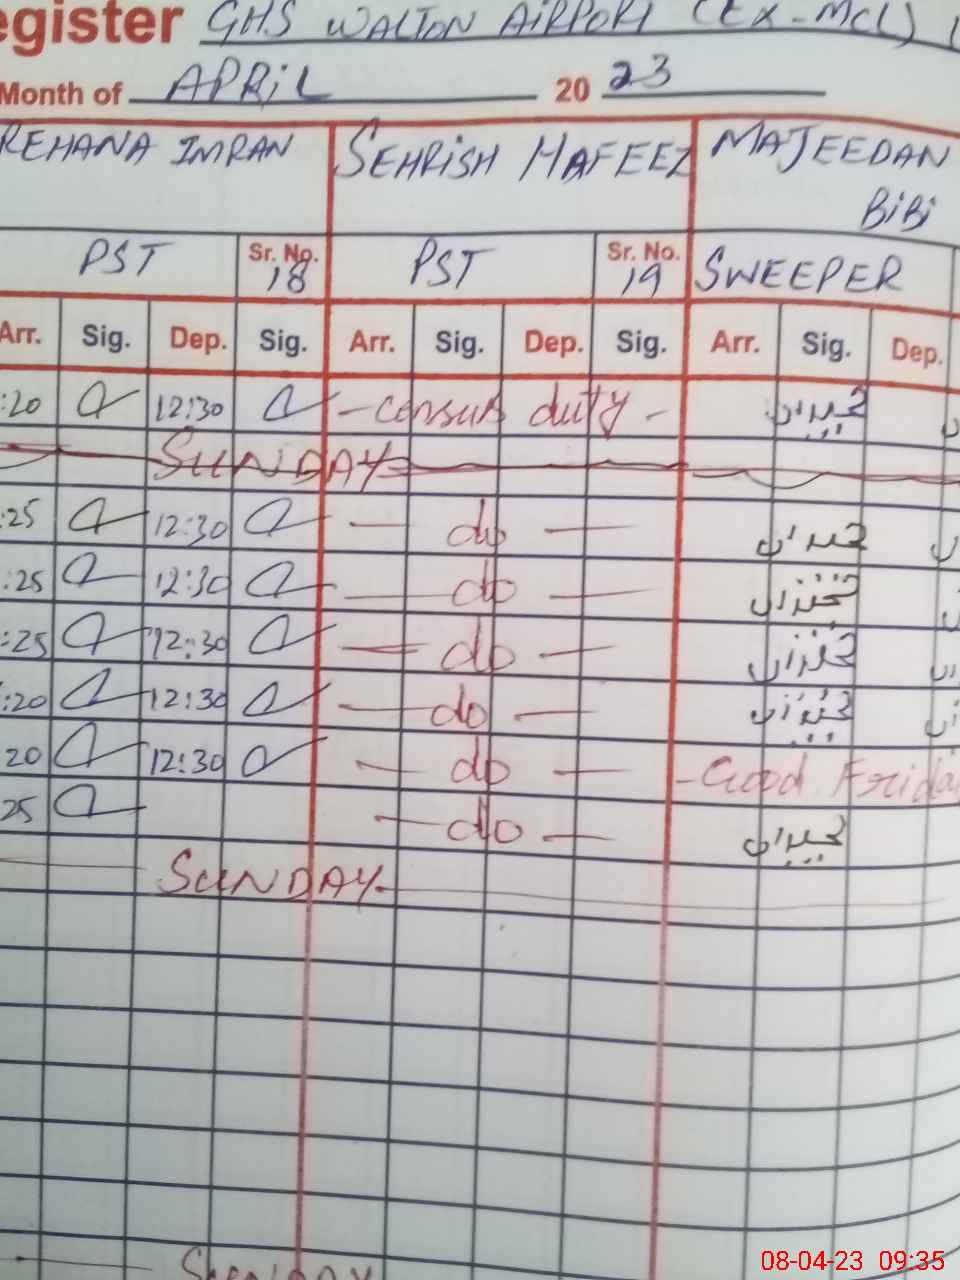 egister GHS WALTON AIRPORT (EX-MCL)
Month of APRIL 20 23
REHANA IMRAN SEHRISH HAFEEZ MAJEEDAN BIBI
PST Sr. No. 18 PST Sr. No. 19 SWEEPER
Arr. Sig. Dep. Sig. Arr. Sig. Dep. Sig. Arr. Sig. Dep.
:20 12:30 - census duty -
SUNDAY
:25 12:30 — do —
:25 12:30 — do —
:25 12:30 — do —
:20 12:30 — do —
20 12:30 — do — - Good Frida
25 — do —
SUNDAY
SUNDAY
08-04-23 09:35